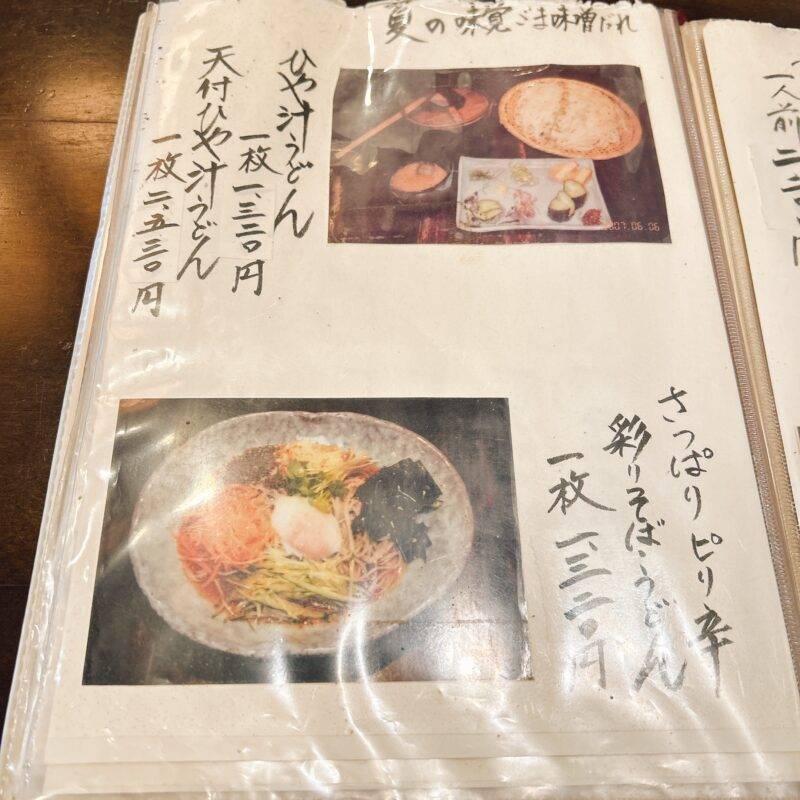 夏の味覚ごま味噌だれ
ひや汁うどん
一枚 一、三二〇円
天付ひや汁うどん
一枚 二、五三〇円
さっぱりピリ辛
彩りそば・うどん
一枚 一、三二〇円
一人前